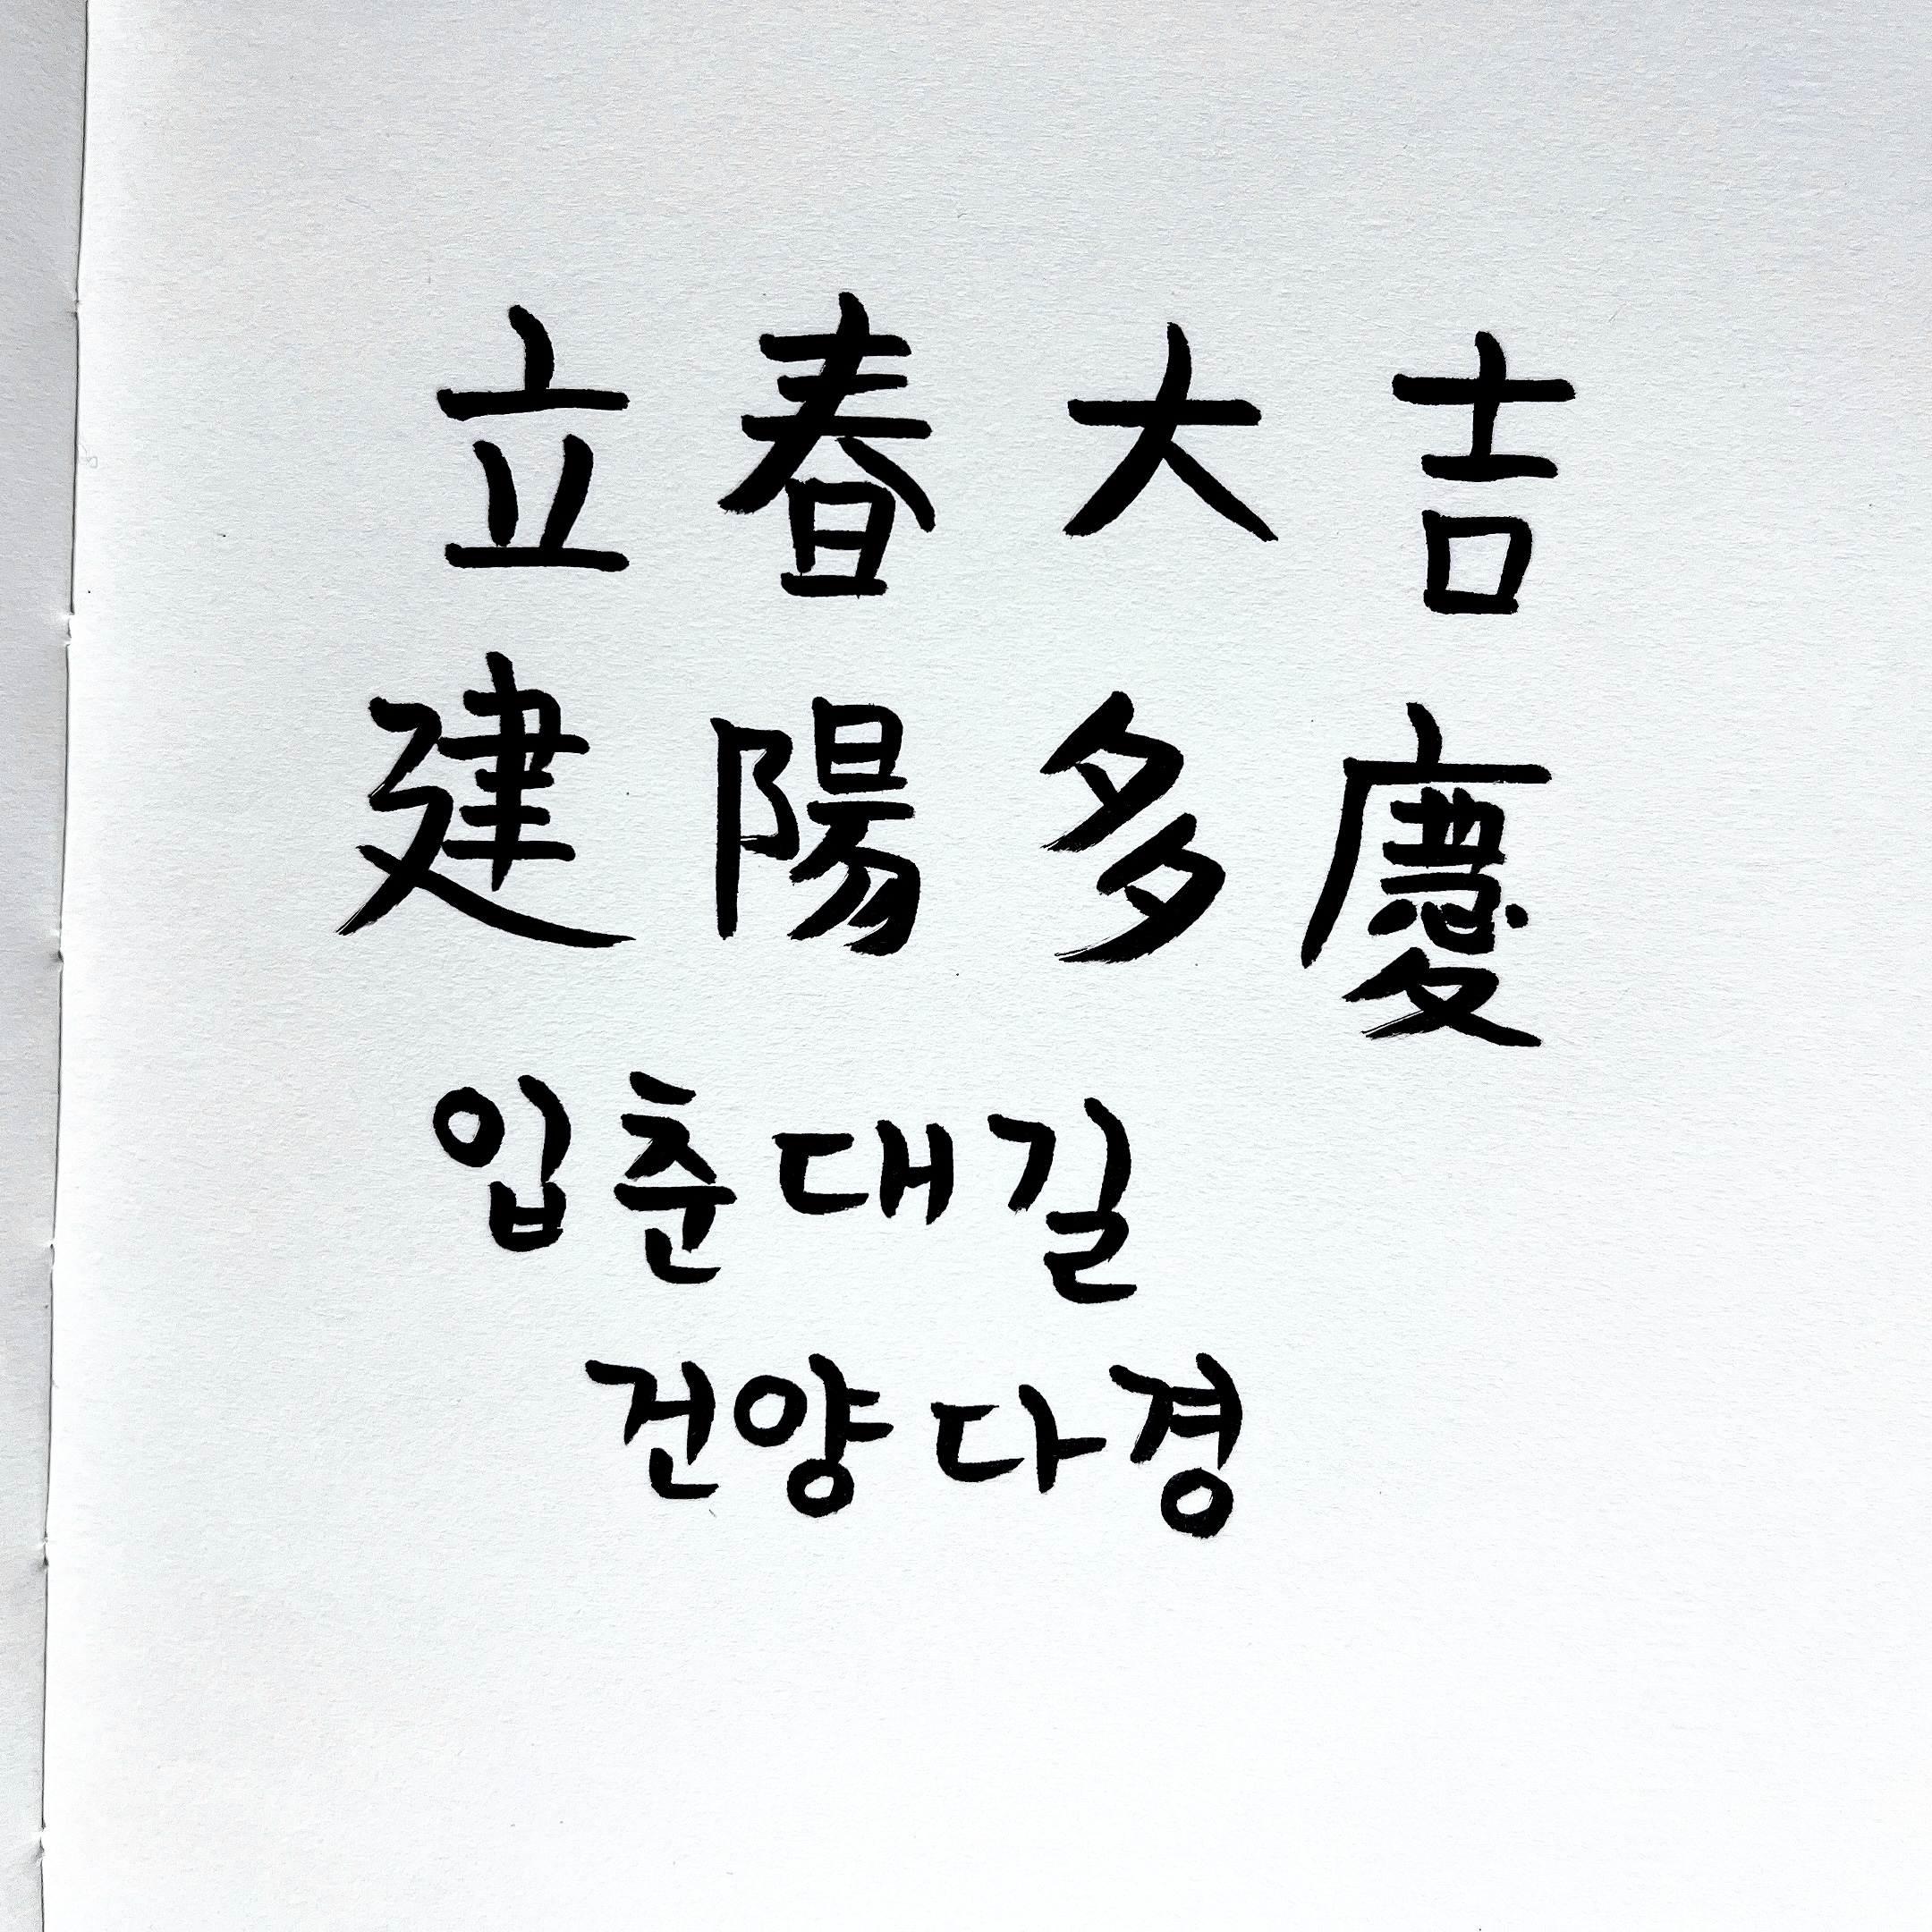 立春大吉
建陽多慶
입춘대길
건양다경